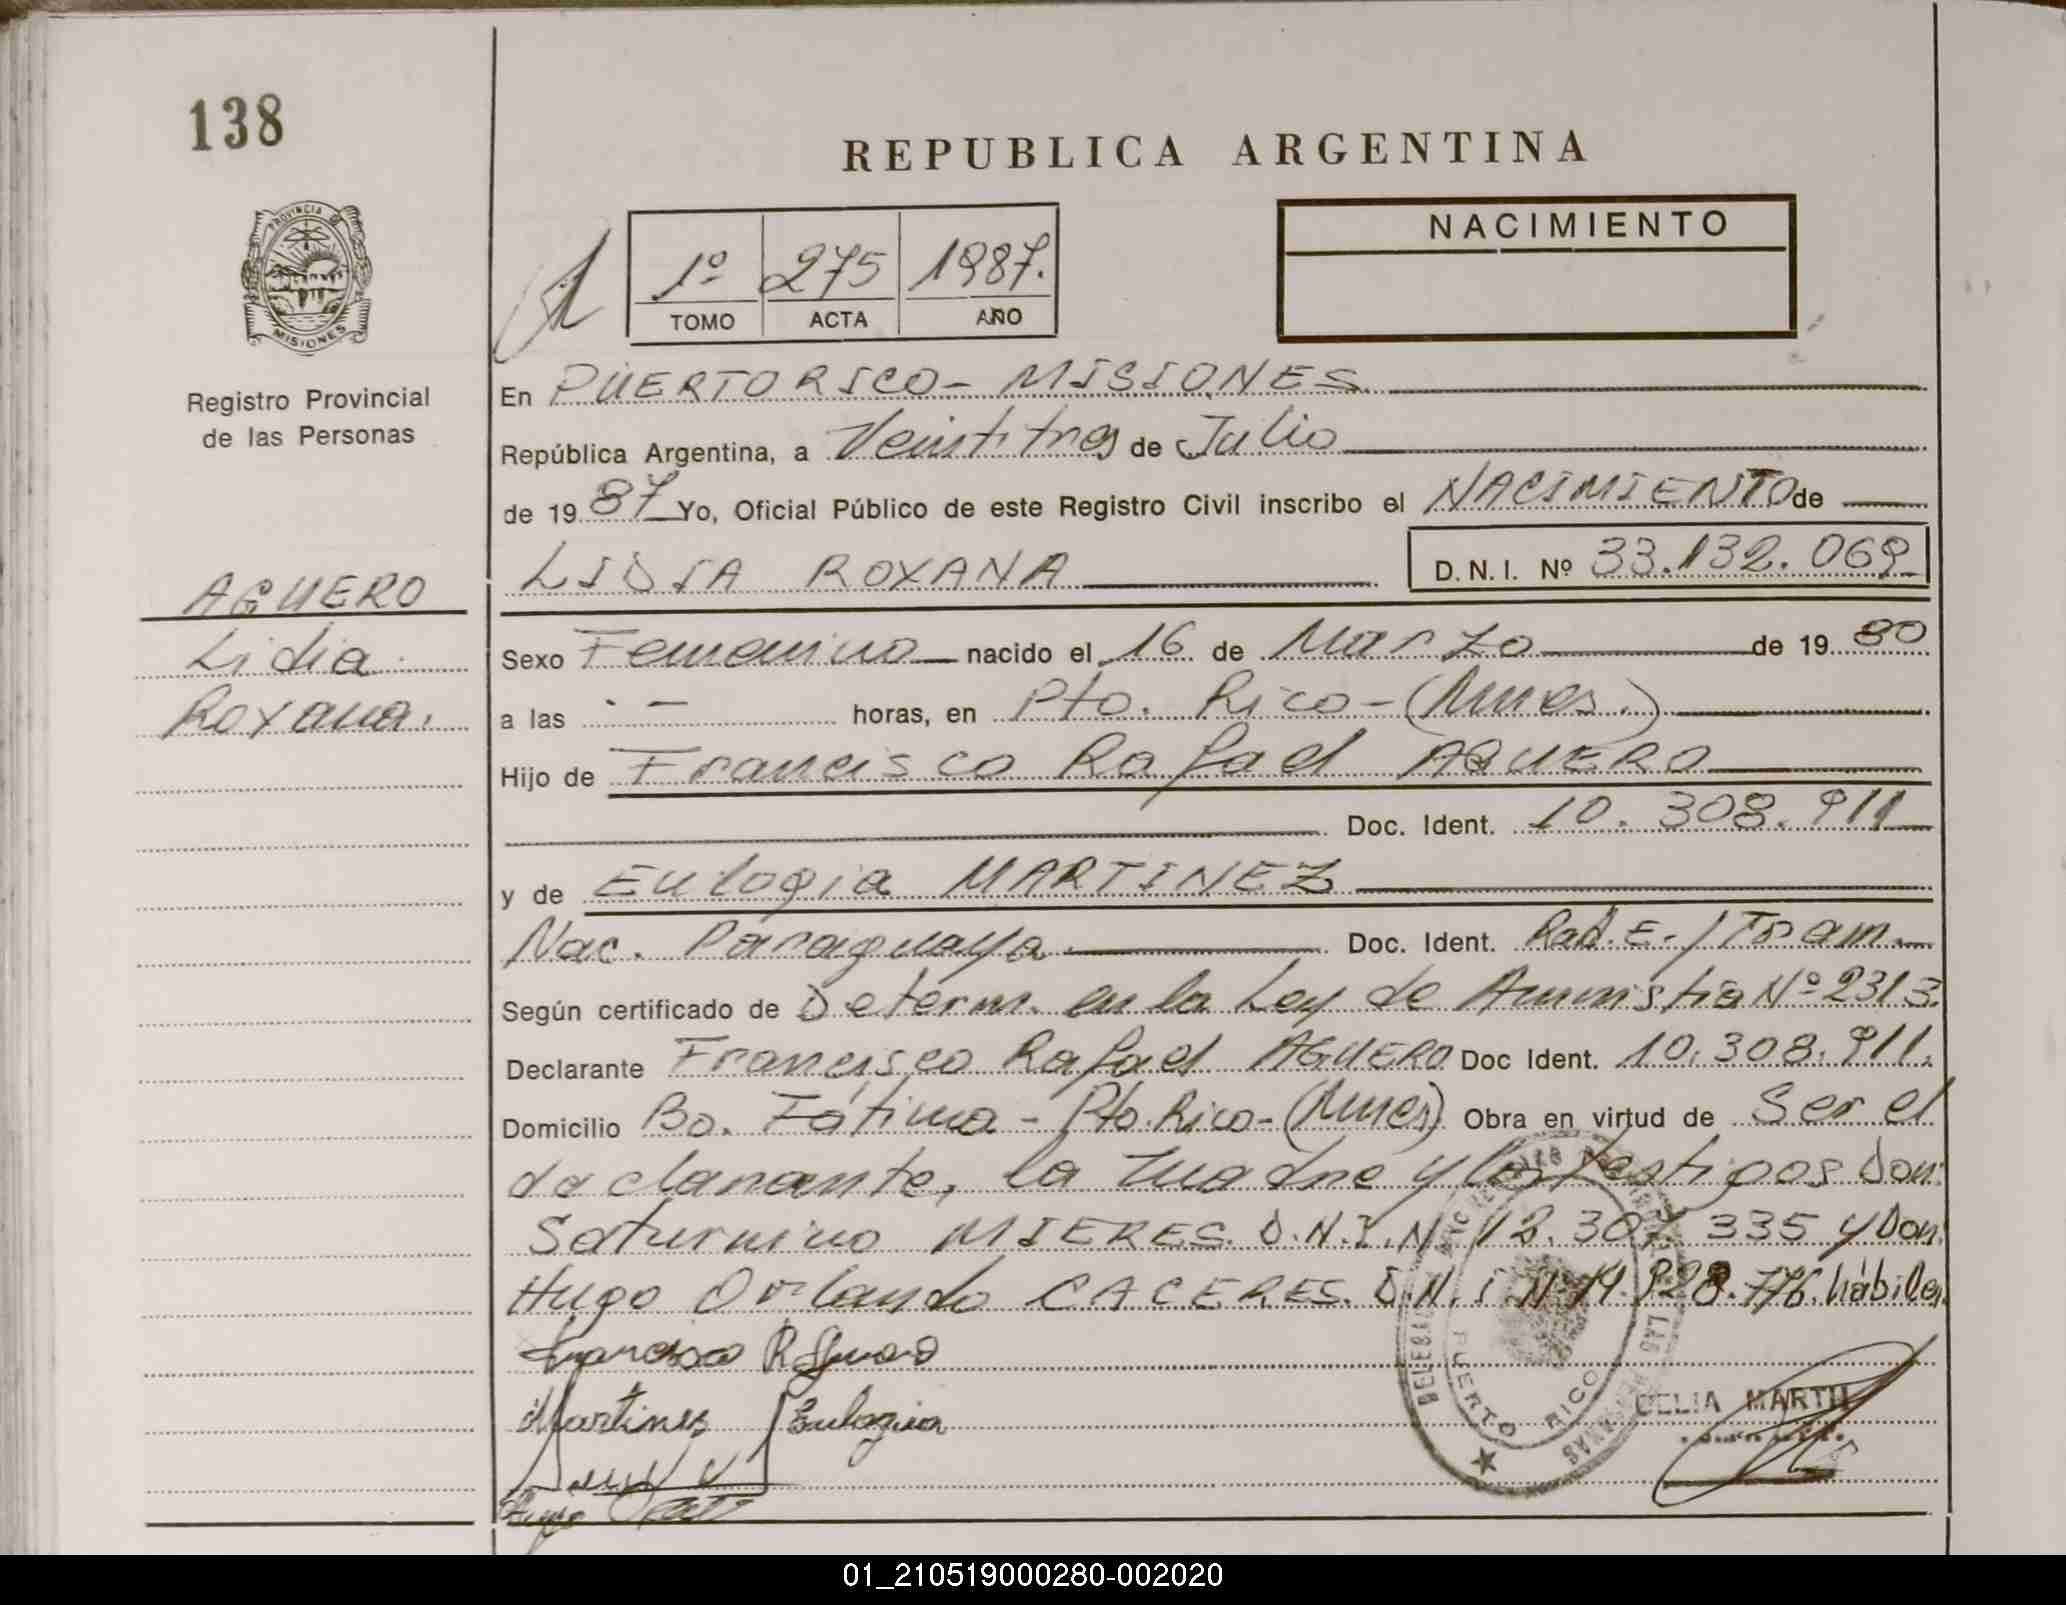 138
REPUBLICA ARGENTINA
PROVINCIA DE
MISIONES
Registro Provincial
de las Personas
1º 275 1987.
TOMO ACTA AÑO
NACIMIENTO
En PUERTO RICO - MISIONES
República Argentina, a Veintitres de Julio
de 19 87 Yo, Oficial Público de este Registro Civil inscribo el NACIMIENTO de
LIDIA ROXANA D.N.I. Nº 33.132.069
AGUERO
Lidia
Roxana.
Sexo Femenino nacido el 16 de Marzo de 19 80
a las . - horas, en Pto. Rico - (Mnes.)
Hijo de Francisco Rafael AGUERO
Doc. Ident. 10.308.911
y de Eulogia MARTINEZ
Nac. Paraguaya. Doc. Ident. Rad. E. / Tram.
Según certificado de Determ. en la Ley de Amnistia Nº 2313.
Declarante Francisco Rafael AGUERO Doc Ident. 10.308.911.
Domicilio Bo. Fátima - Pto. Rico - (Mnes) Obra en virtud de Ser el
declarante, la madre y los testigos Don:
Saturnino MIERES. D.N.I. Nº 12.307.335 y Don:
Hugo Orlando CACERES. D.N.I Nº 14.928.776. hábiles.
Francisco R Aguero
Martinez Eulogia
PUERTO RICO
CELIA
Hugo
01_210519000280-002020